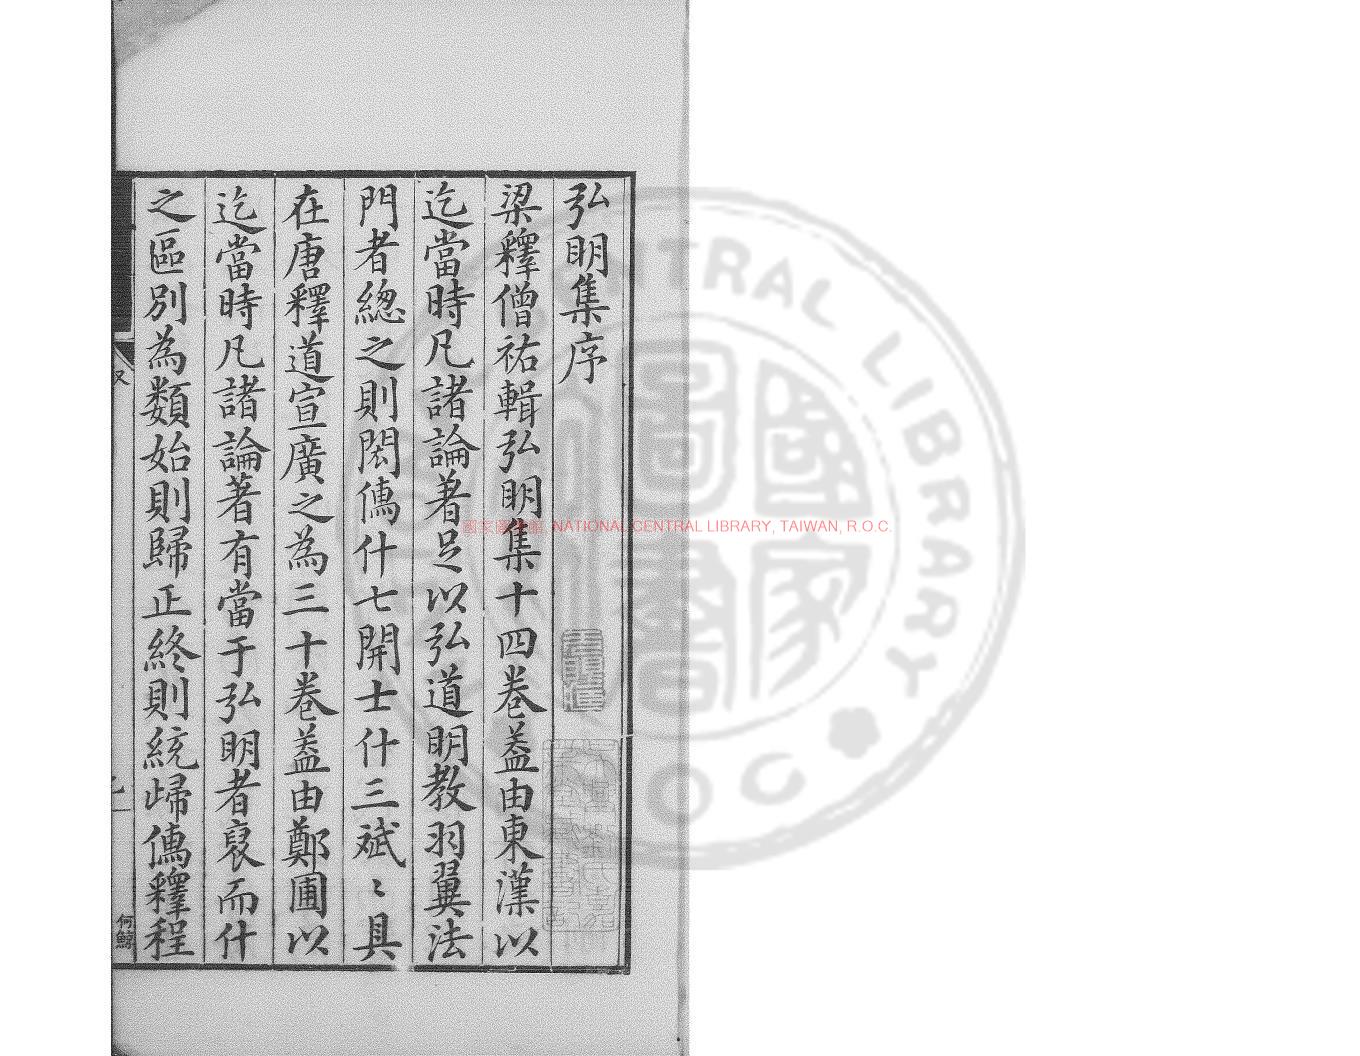 弘明集序
梁釋僧祐輯弘明集十四卷葢由東漢以
迄當時凡諸論著足以弘道明教羽翼法
門者緫之則閎儁什七開士什三斌〻具
在唐釋道宣廣之為三十卷葢由鄭圃以
迄當時凡諸論著有當于弘明者裒而什
之區別為類始則歸正終則統歸儁釋程
何鯨
國家圖書館, NATIONAL CENTRAL LIBRARY, TAIWAN, R.O.C.
CENTRAL LIBRARY
ROC
國家圖書